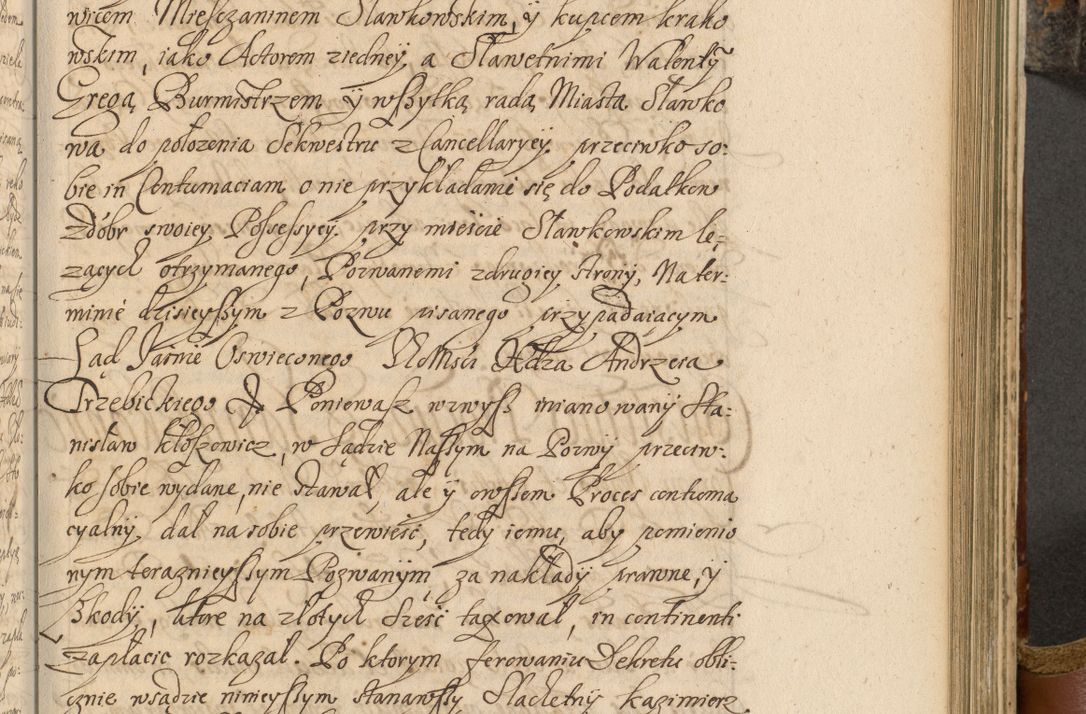 wicem Mieszczaninem Sławkowskim, y kupcem krako
wskim, iako Actorem ziedney, a Sławetnimi Walenty
Gregą Burmistrzem y wszytką radą Miasta Sławko
wa do położenia Sekwestru z Cancellaryey przeciwko so:
bie in Contumaciam o nie przykładanie się do Podatkow
zdóbr swoiey Possessyey przy mieście Sławkowskim le:
zących otrzymanego, Pozwanemi zdrugiey strony, Na ter:
minie dzisieyszym z Pozwu pisanego przypadaiącym
Sąd Jaśnie Oswieconego Xdza Andrzeia
Trzebickiego &c Poniewasz wzwysz mianowany Sta:
nisław kłoszowicz, w Sądzie Naszym na Pozwy przeciw:
ko sobie wydane, nie stawał, ale y owszem Proces contuma
cyalny dał na sobie przewieść, tedy iemu, aby pomienio
nym teraznieyszym Pozwanym, za nakłady prawne, y
Szkody, ktore na złotych sześć taxował, in continenti
zapłacic rozkazał. Po ktorym ferowaniu Dekretu obli:
cznie wsądzie ninieyszym stanąwszy Slachetny kazimierz